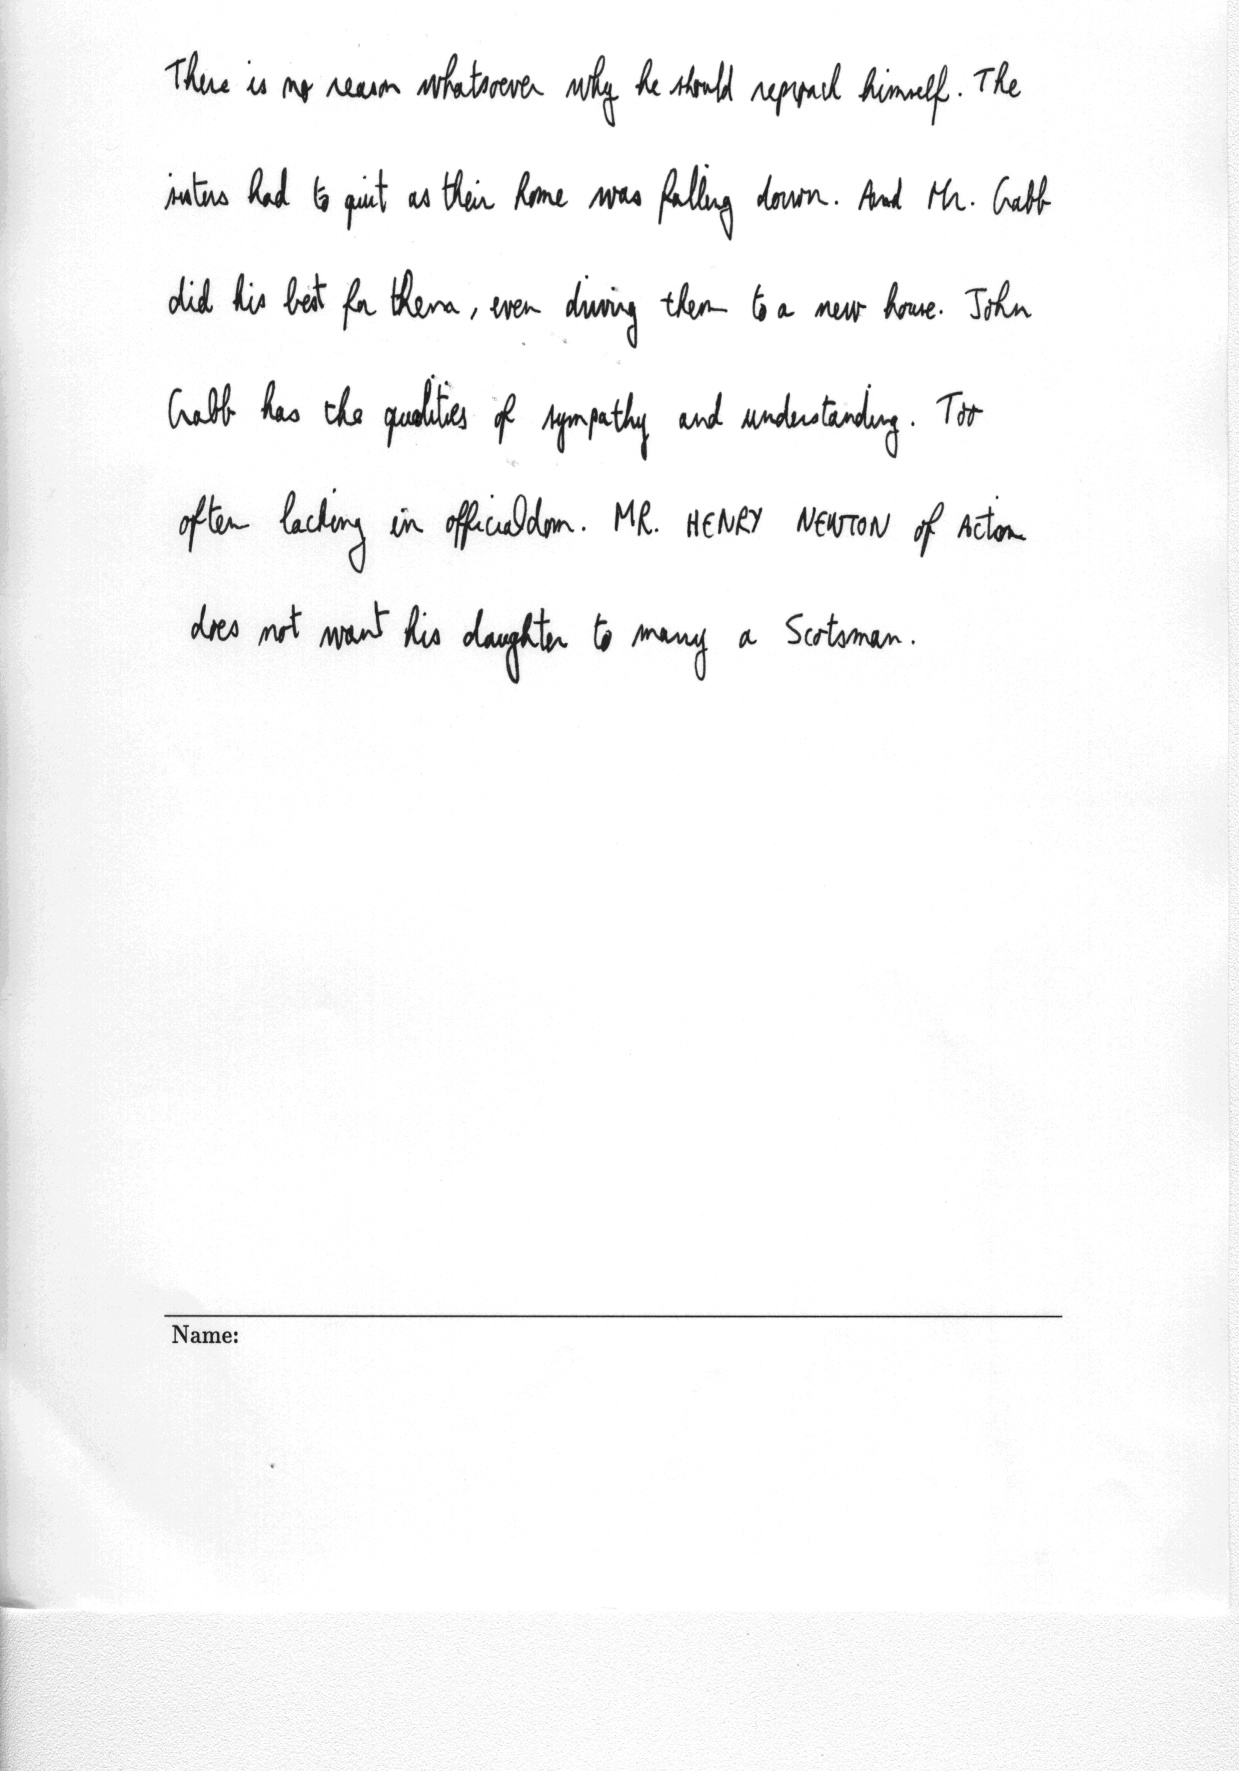 There is no reason whatsoever why he should reproach himself. The
sisters had to quit as their home was falling down. And Mr. Crabb
did his best for them, even driving them to a new house. John
Crabb has the qualities of sympathy and understanding. Too
often lacking in officialdom. MR. HENRY NEWTON of Acton
does not want his daughter to marry a Scotsman.
Name: